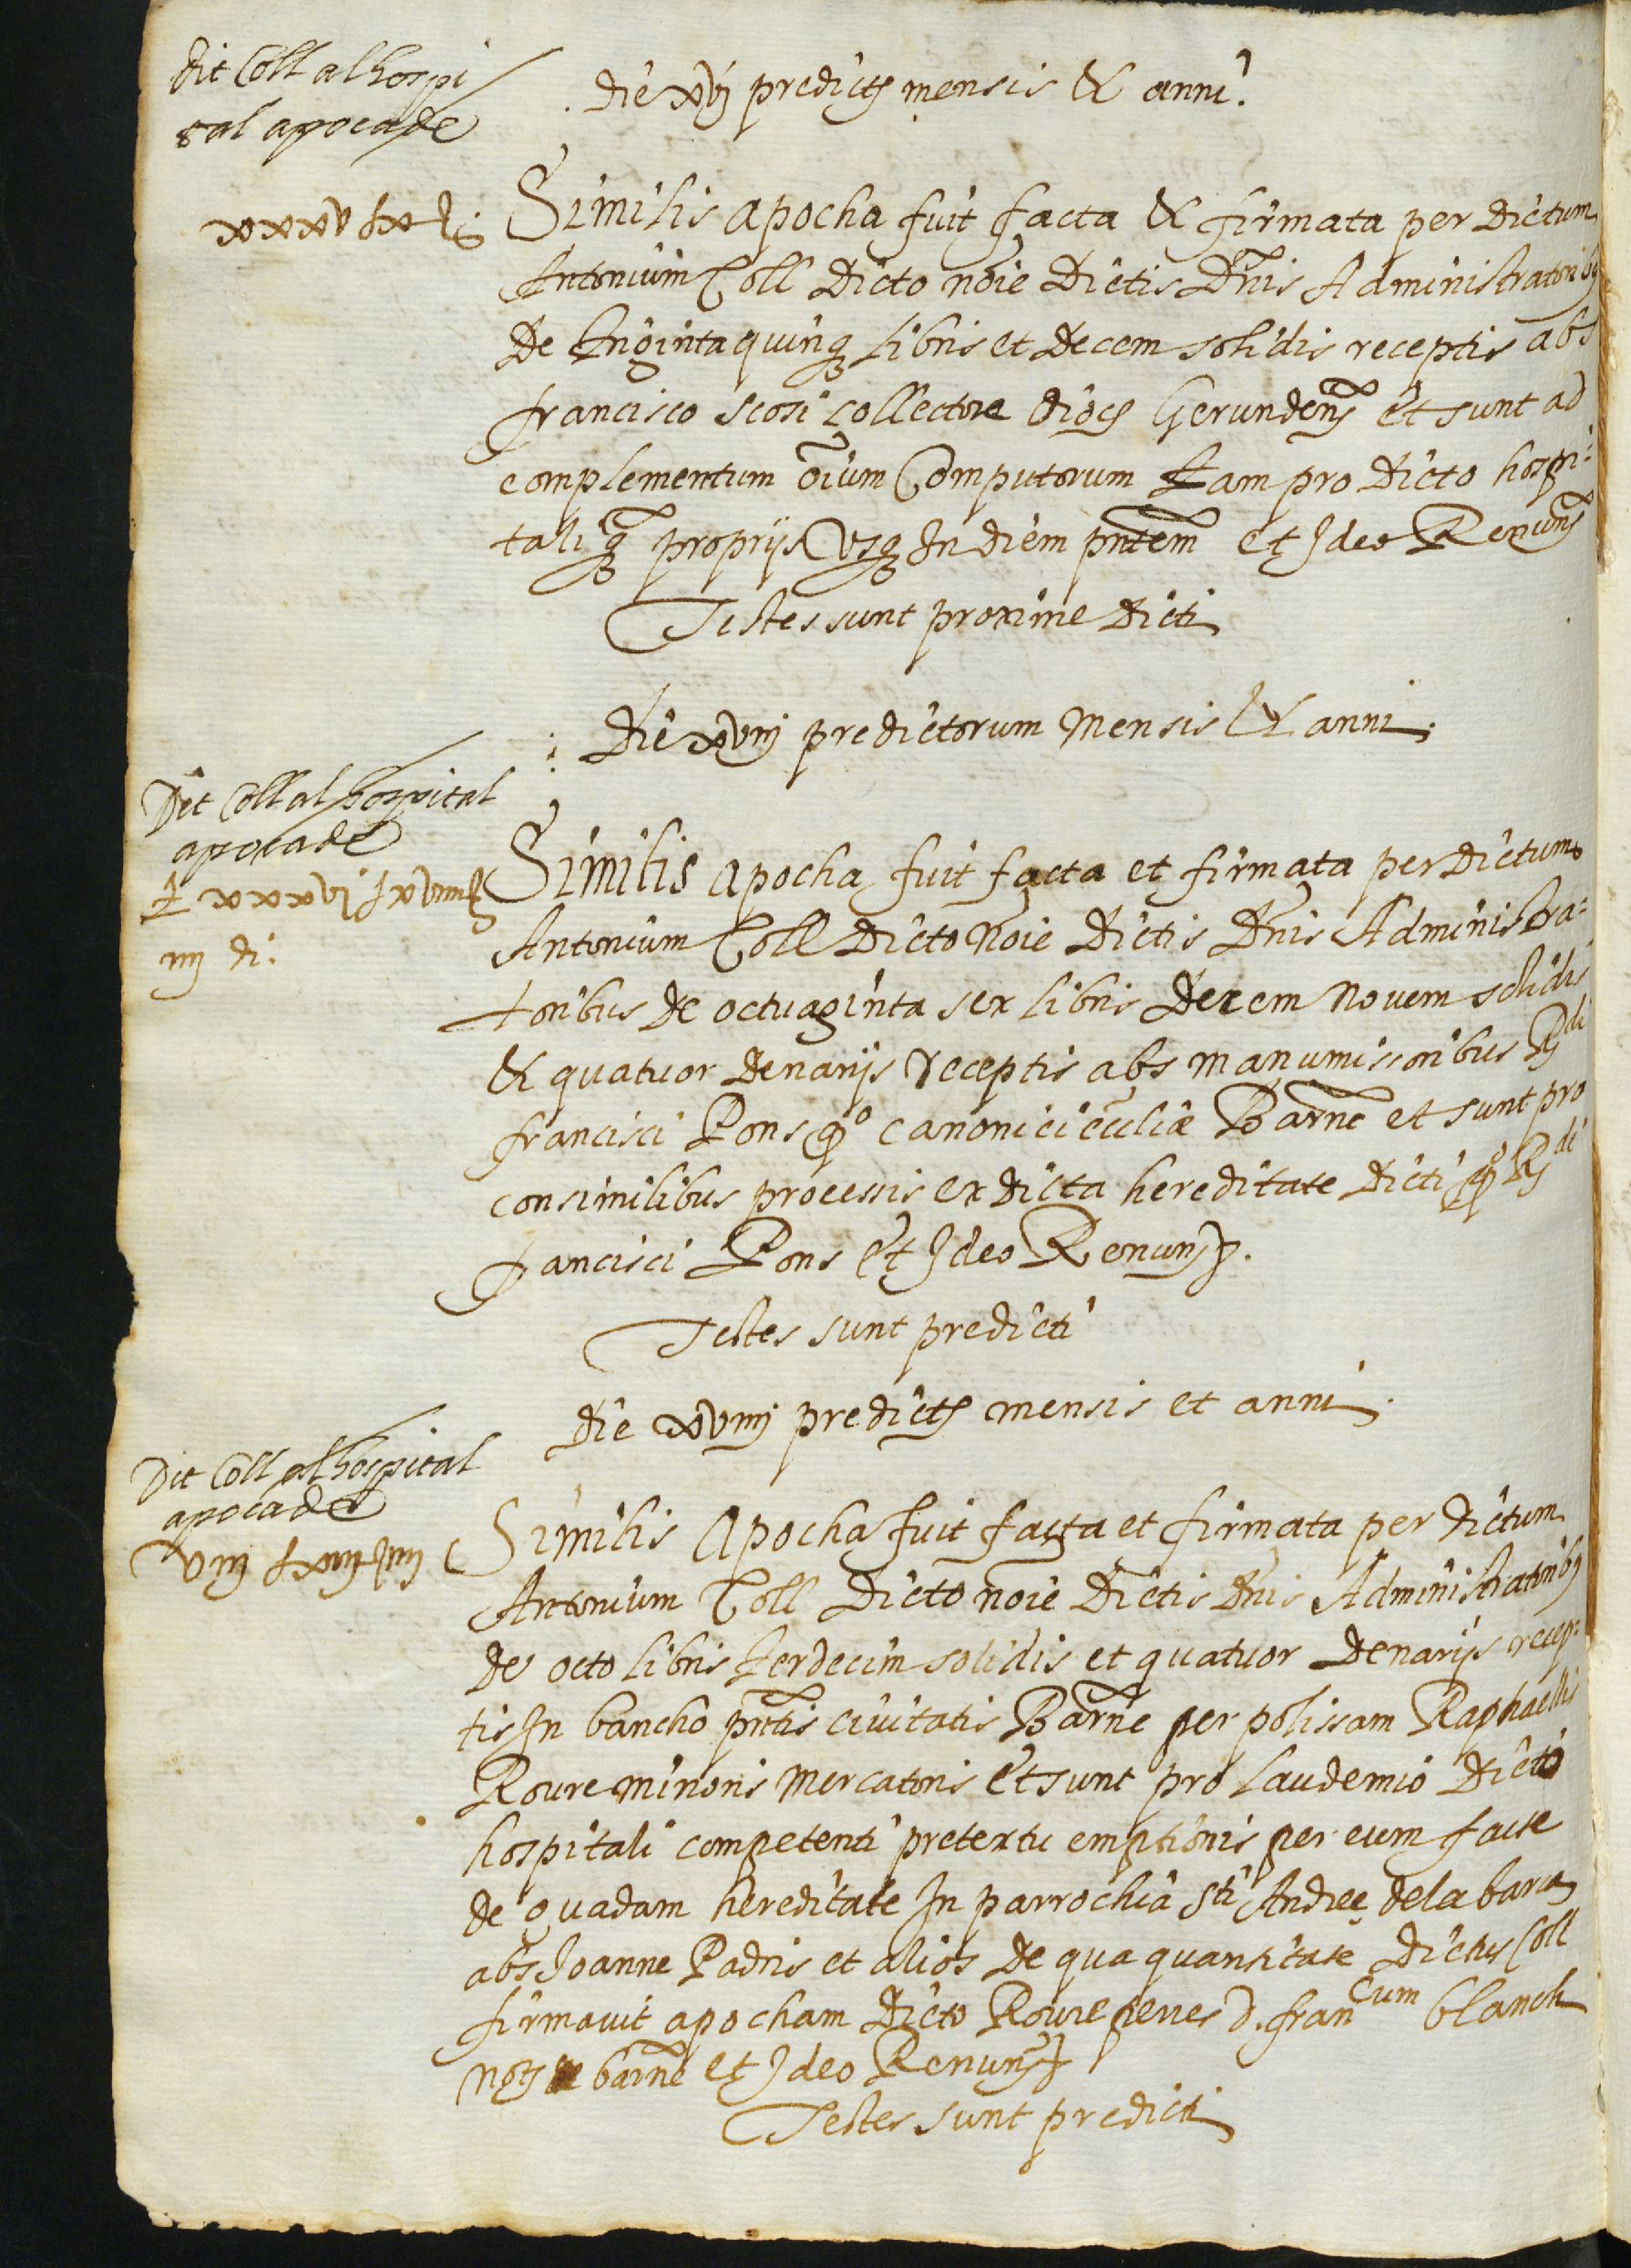 dit Coll al hospi
tal apoca de
xxxxv ƚ x s.
Die xvj predicts mensis & anni.
Similis apocha fuit facta & firmata per dictum
Antonium Coll dicto noie dictis Dnis Administratoribs
de triginta quinq libris et decem solidis receptis abs
francisco scori collectore diocs Gerundens et sunt ad
complementum oium Computorum tam pro dicto hospi:
tali q proprijs Usq In diem pntem et Ideo Renuns
Testes sunt proxime dicti
Die xviij predictorum Mensis & anni.
Dit Coll al hospital
apoca de
ƚxxxvj ƚ xviiij s
iiij di.
Similis apocha fuit facta et firmata per dictum
Antonium Coll dicto Noie dictis Dnis Administra:
toribus de octuaginta sex libris decem novem solidis
& quatuor denarijs receptis abs manumissoribus Rdi
francisci Pons qo canonici eccliæ Barne et sunt pro
consimilibus processis ex dicta hereditate dicti qo Rdi
francisci Pons et Ideo Renuns.
Testes sunt predicti
Die xviiij predicts mensis et anni.
Dit Coll al hospital
apoca de
viij ƚ xiij s iiij
Similis apocha fuit facta et firmata per dictum
Antonium Coll dicto noie dictis Dnis Administratoribs
de octo libris terdecim solidis et quatuor denarijs recep:
tis In bancho pntis civitatis Barne per polissam Raphaellis
Roure minoris mercatoris et sunt pro laudemio dicto
hospitali competenti pretextu emptionis per eum facte
de quadam hereditate In parrochia Sti Andree de la barca
abs Joanne Padris et alios de qua quantitate dictus Coll
firmavit apocham dicto Roure penes D. francum blanch
nots de barne et Ideo Renuns
Testes sunt predicti